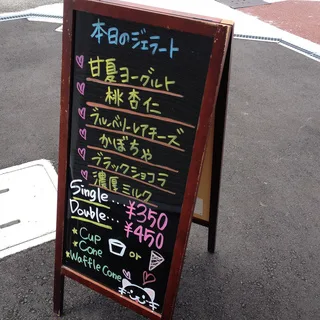 本日のジェラート
甘夏ヨーグルト
桃杏仁
ブルーベリーレアチーズ
かぼちゃ
ブラックショコラ
濃厚ミルク
Single... ¥350
Double... ¥450
*Cup or
*Cone
*Waffle Cone